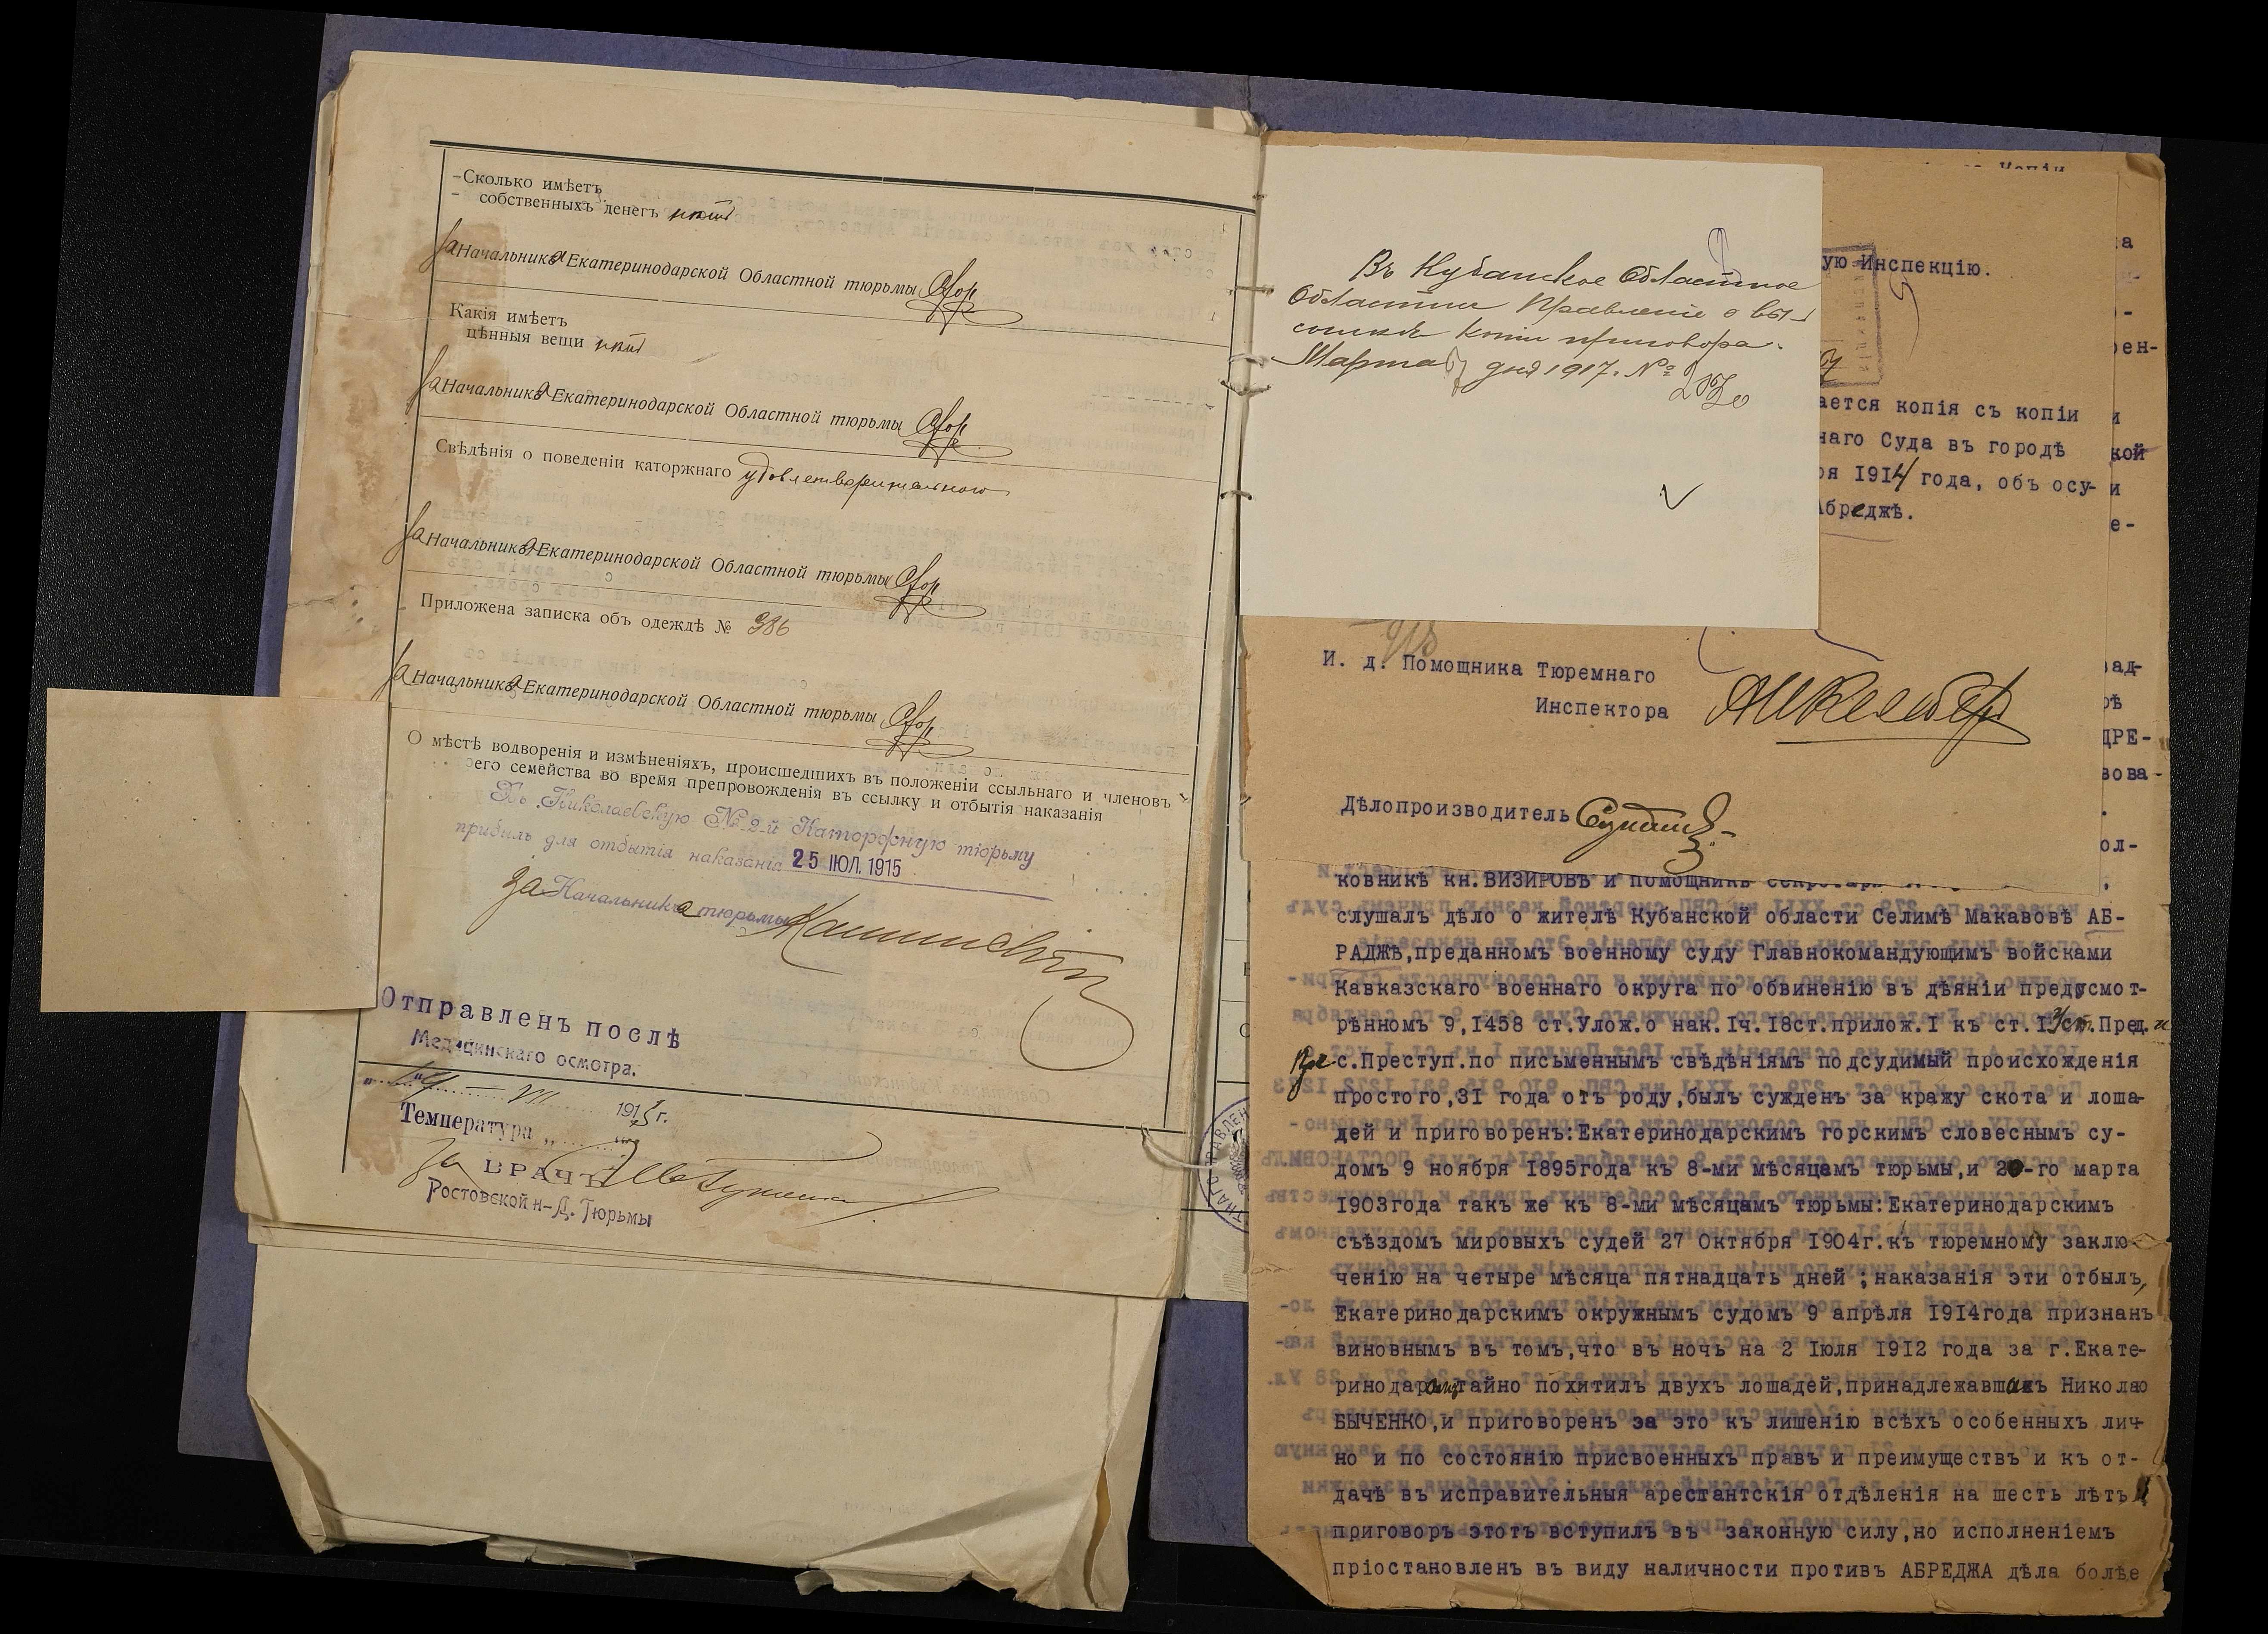 Сколько имѣетъ
собственныхъ денегъ нѣтъ
За Начальника Екатеринодарской Областной тюрьмы
Какія имѣетъ
цѣнныя вещи нѣтъ
За Начальника Екатеринодарской Областной тюрьмы
Свѣдѣнія о поведеніи каторжнаго удовлетворительнаго
За Начальника Екатеринодарской Областной тюрьмы
Приложена записка объ одеждѣ № 386
За Начальника Екатеринодарской Областной тюрьмы
О мѣстѣ водворенія и измѣненіяхъ, происшедшихъ въ положеніи ссыльнаго и членовъ
его семейства во время препровожденія въ ссылку и отбытія наказанія
Въ Николаевскую № 2-й Каторжную тюрьму
прибылъ для отбытія наказанія 25 ІЮЛ. 1915
за Начальника тюрьмы
Отправленъ послѣ
Медицинскаго осмотра.
VII 1915 г.
Температура
За ВРАЧЪ
Ростовской н-Д. Тюрьмы
Въ Кубанское Областное
Областное Правленіе о вы-
сылкѣ копіи приговора.
Марта дня 1917. №
ую Инспекцію.
ается копія съ копіи
наго Суда въ городѣ
ря 1914 года, объ осу-
Абреджѣ.
И. д. Помощника Тюремнаго
Инспектора
Дѣлопроизводитель
ковникѣ кн.ВИЗИРОВѢ и помощникѣ
слушалъ дѣло о жителѣ Кубанской области Селимѣ Макавовѣ АБ-
РАДЖѢ,преданномъ военному суду Главнокомандующимъ войсками
Кавказскаго военнаго округа по обвиненію въ дѣяніи предусмот-
рѣнномъ 9,1458 ст.Улож.о нак.Iч.18ст.прилож.I къ ст.I Уст.Пред.и
Пре-с.Преступ.по письменнымъ свѣдѣніямъ подсудимый происхожденія
простого,31 года отъ роду,былъ сужденъ за кражу скота и лоша-
дей и приговоренъ:Екатеринодарскимъ горскимъ словеснымъ су-
домъ 9 ноября 1895года къ 8-ми мѣсяцамъ тюрьмы,и 20-го марта
1903года такъ же къ 8-ми мѣсяцамъ тюрьмы:Екатеринодарскимъ
съѣздомъ мировыхъ судей 27 Октября 1904г.къ тюремному заклю-
ченію на четыре мѣсяца пятнадцать дней;наказанія эти отбылъ,
Екатеринодарскимъ окружнымъ судомъ 9 апрѣля 1914года признанъ
виновнымъ въ томъ,что въ ночь на 2 Іюля 1912 года за г.Екате-
ринодаромъ тайно похитилъ двухъ лошадей,принадлежавшихъ Николаю
БЫЧЕНКО,и приговоренъ за это къ лишенію всѣхъ особенныхъ лич-
но и по состоянію присвоенныхъ правъ и преимуществъ и къ от-
дачѣ въ исправительныя арестантскія отдѣленія на шесть лѣтъ
приговоръ этотъ вступилъ въ законную силу,но исполненіемъ
пріостановленъ въ виду наличности противъ АБРЕДЖА дѣла болѣе